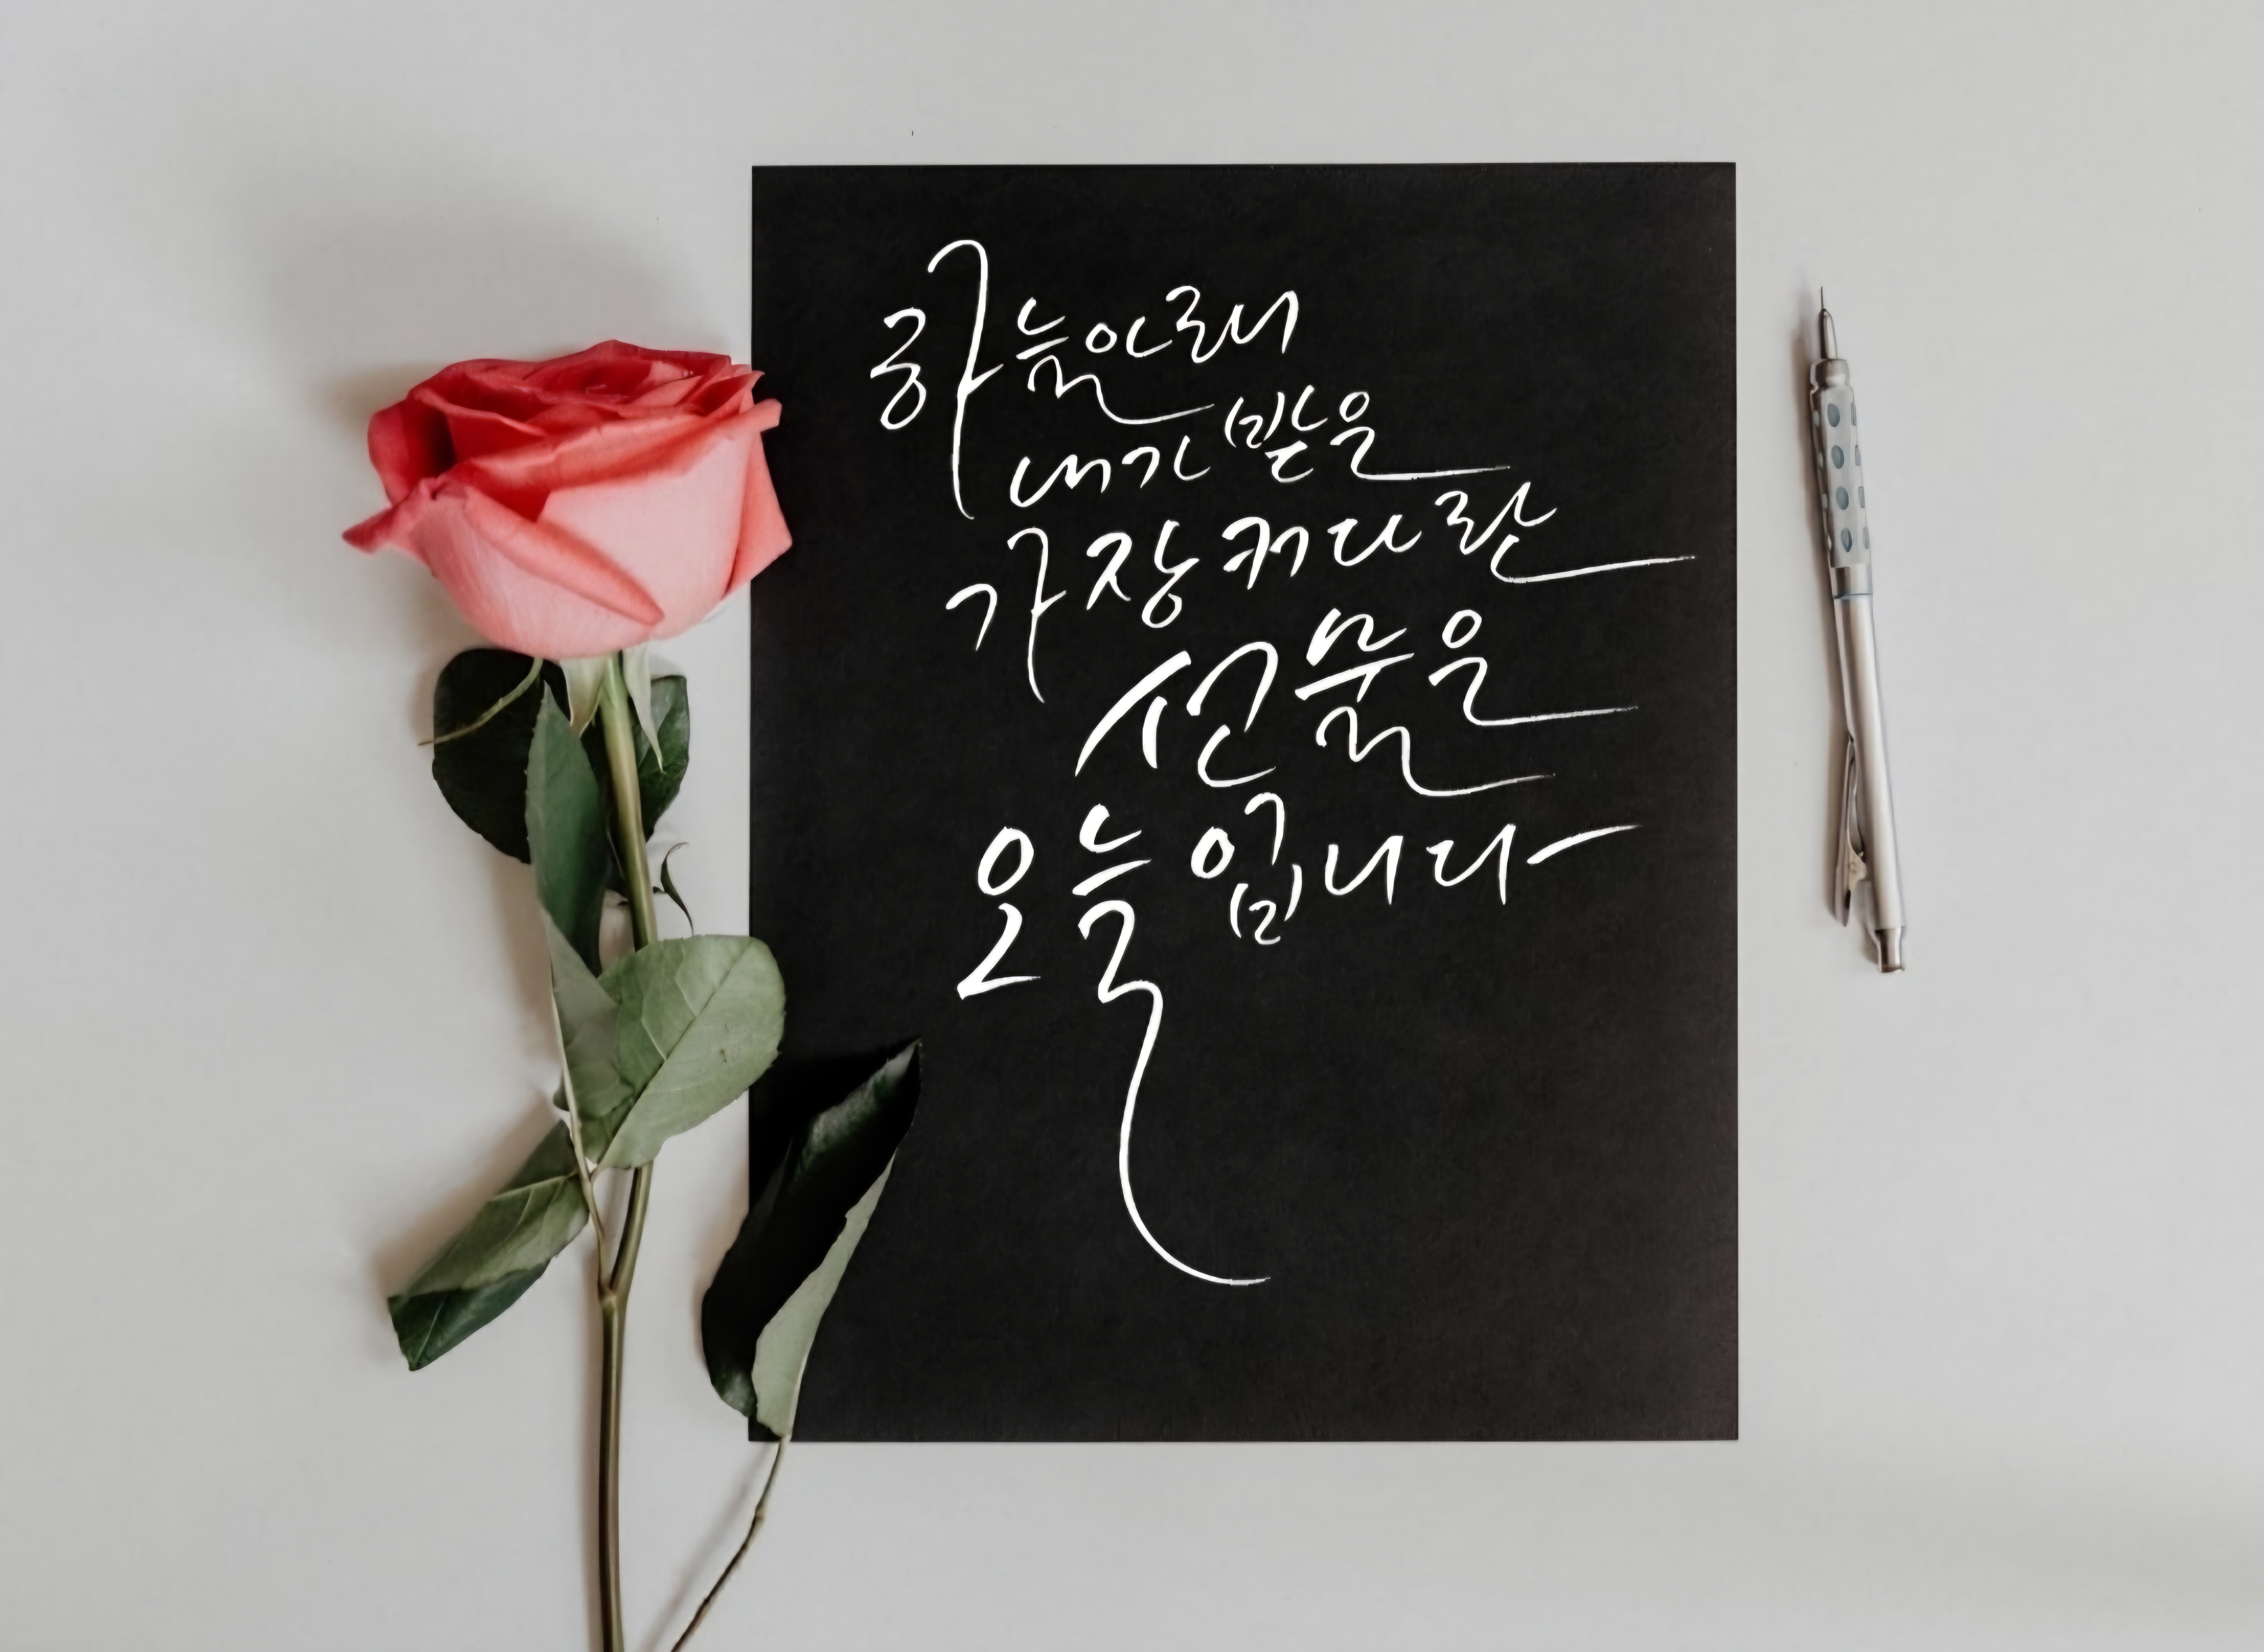 하늘아래
내가 받은
가장 커다란
선물은
오늘입니다